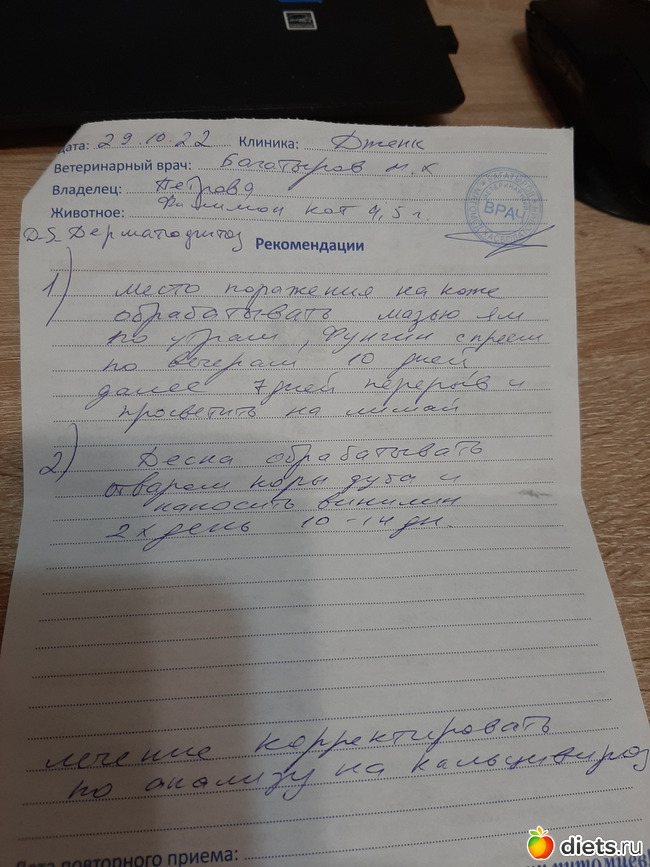 Дата: 29.10.22 Клиника: Дженк
Ветеринарный врач: Багатыров М.К
Владелец: Петрова
Животное: Филимон кот 4,5 г.
ВРАЧ
D-S Дерматофитоз
Рекомендации
1) место поражения на коже
обрабатывать мазью ям
по утрам, Фунгин спреем
по вечерам 10 дней
далее 7 дней перерыв и
просветить на лишай
2) Десна обрабатывать
отваром коры дуба и
наносить винилин
2 х день 10-14 дн.
лечение корректировать
по анализу на кальцивироз
Дата повторного приема:
diets.ru